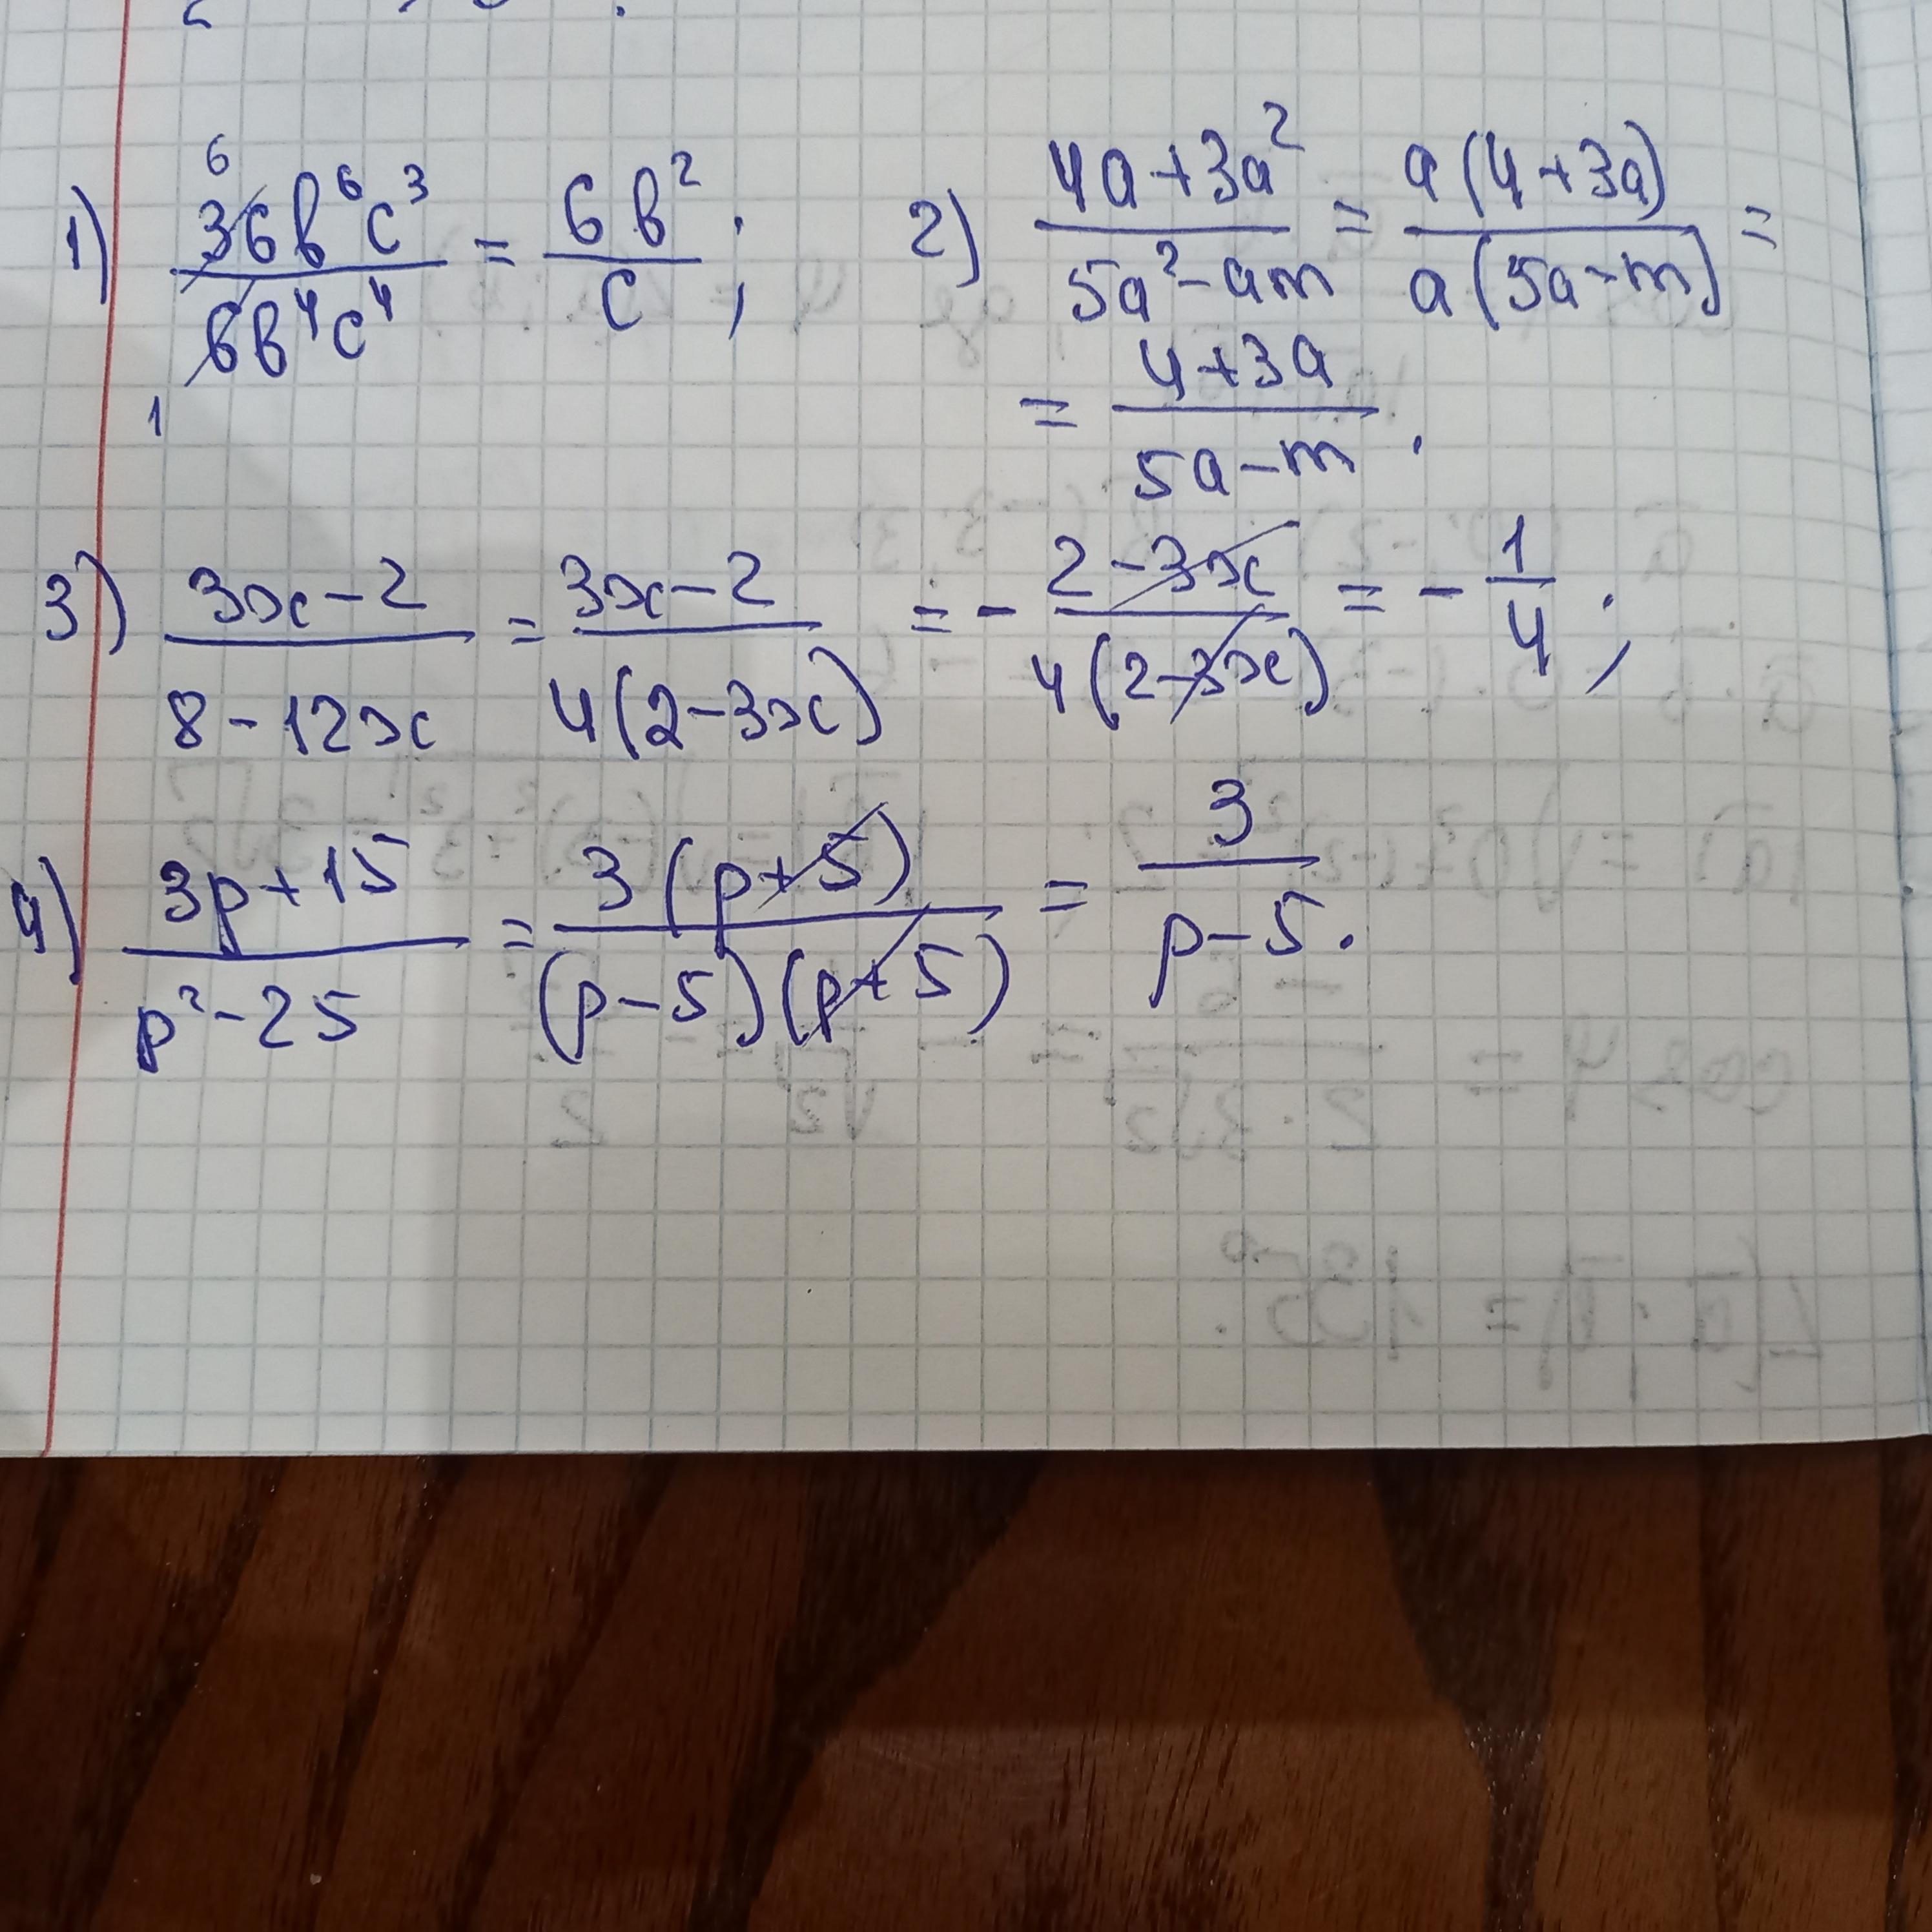 1) 36b⁶c³ / 6b⁴c⁴ = 6b² / c ; 2) 4a+3a² / 5a²-am = a(4+3a) / a(5a-m) =
6
1
= 4+3a / 5a-m .
3) 3x-2 / 8-12x = 3x-2 / 4(2-3x) = - 2-3x / 4(2-3x) = - 1/4 ;
4) 3p+15 / p²-25 = 3(p+5) / (p-5)(p+5) = 3 / p-5 .